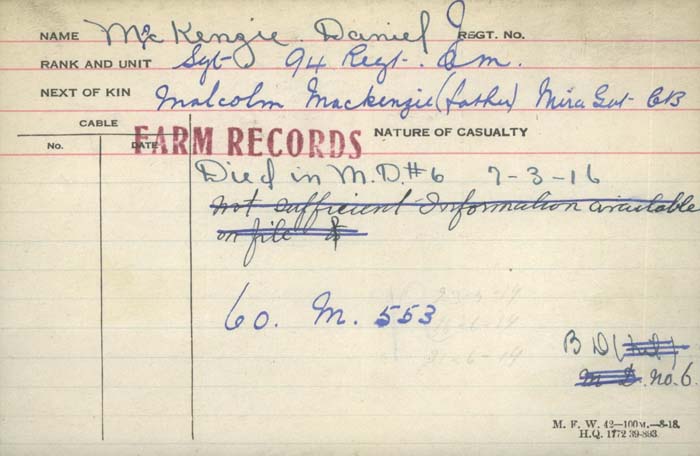 NAME McKenzie Daniel J REGT. No.
RANK AND UNIT Sgt 94 Regt. C.M.
NEXT OF KIN Malcolm Mackenzie (father) Mira Gut CB
CABLE
No. DATE FARM RECORDS NATURE OF CASUALTY
Died in M.D. #6 7-3-16
Not sufficient Information available
on file
60. M. 553
B D
M D. no. 6.
M. F. W. 42—100M.—8-18.
H.Q. 1772 39-893.